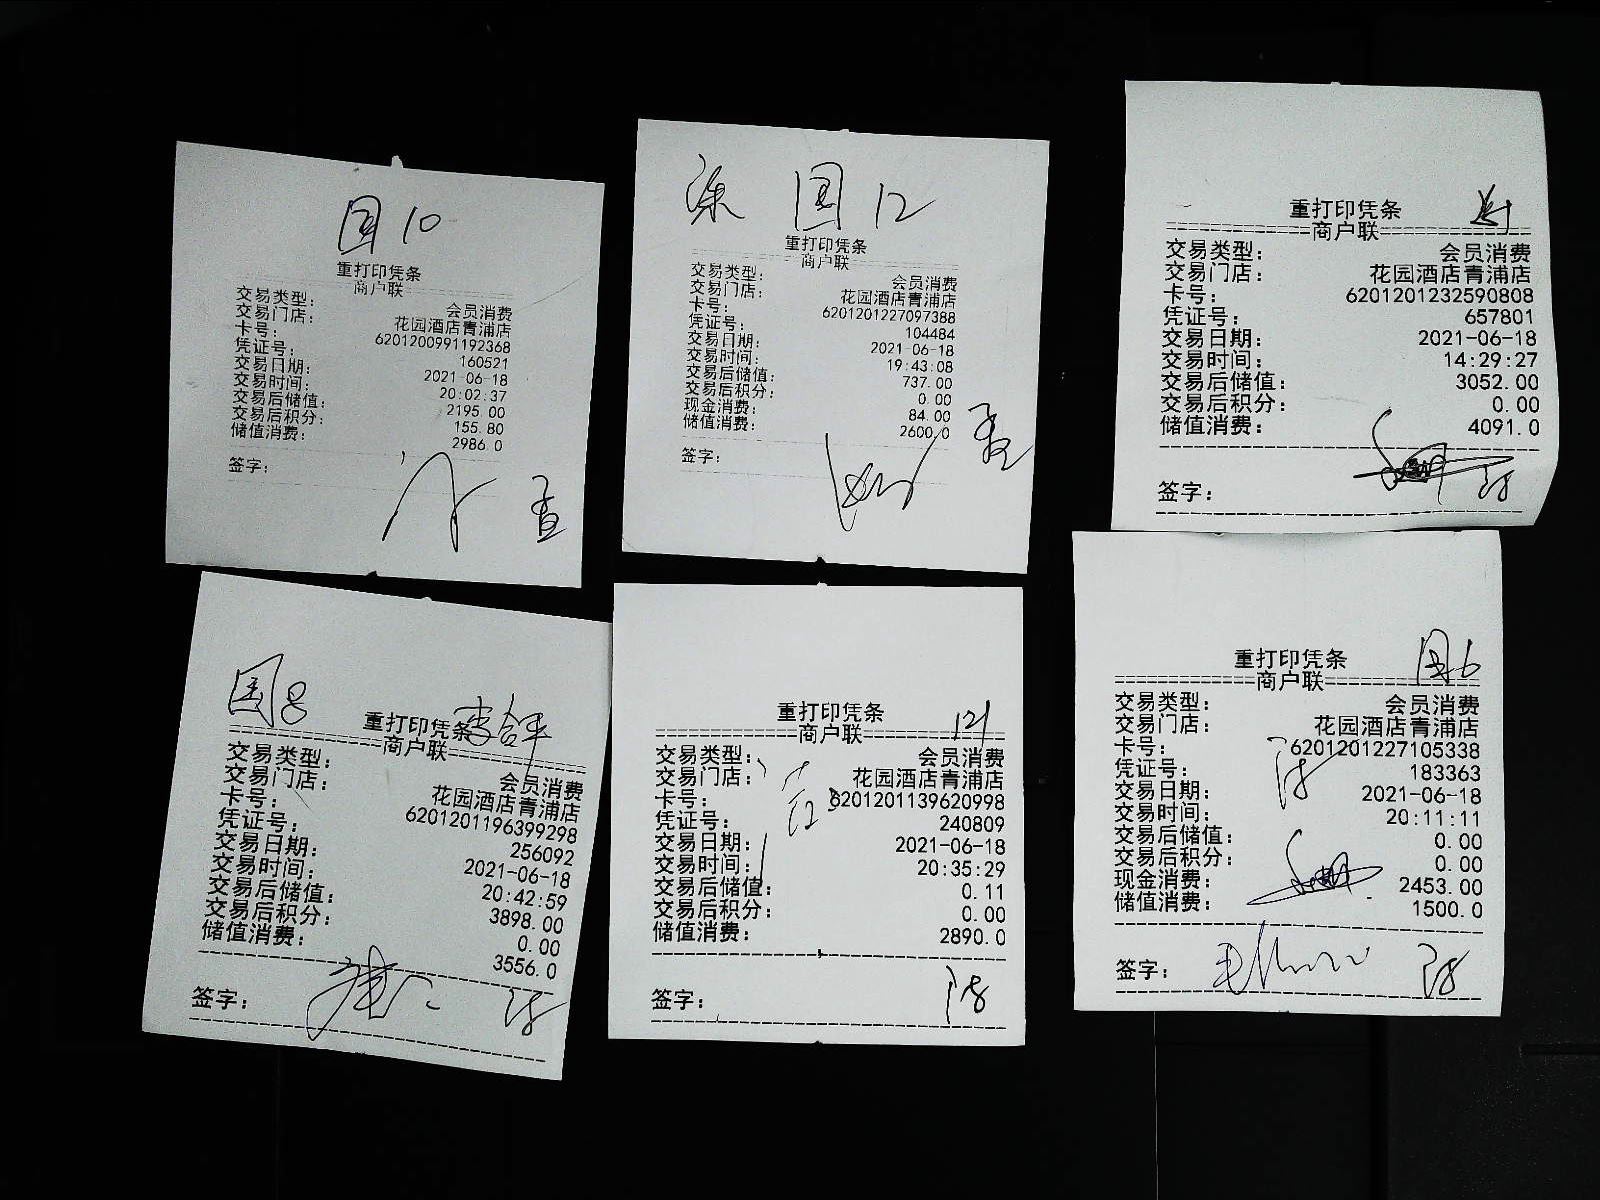 国10
重打印凭条
商户联
交易类型: 会员消费
交易门店: 花园酒店青浦店
卡号: 6201200991192368
凭证号: 160521
交易日期: 2021-06-18
交易时间: 20:02:37
交易后储值: 2195.00
交易后积分: 155.80
储值消费: 2986.0
签字:
涂 国 12
重打印凭条
商户联
交易类型: 会员消费
交易门店: 花园酒店青浦店
卡号: 6201201227097388
凭证号: 104484
交易日期: 2021-06-18
交易时间: 19:43:08
交易后储值: 737.00
交易后积分: 0.00
现金消费: 84.00
储值消费: 2600.0
签字:
重打印凭条
商户联
交易类型: 会员消费
交易门店: 花园酒店青浦店
卡号: 6201201232590808
凭证号: 657801
交易日期: 2021-06-18
交易时间: 14:29:27
交易后储值: 3052.00
交易后积分: 0.00
储值消费: 4091.0
签字:
国8
重打印凭条
商户联
交易类型: 会员消费
交易门店: 花园酒店青浦店
卡号: 6201201196399298
凭证号: 256092
交易日期: 2021-06-18
交易时间: 20:42:59
交易后储值: 3898.00
交易后积分: 0.00
储值消费: 3556.0
签字:
重打印凭条 121
商户联
交易类型: 会员消费
交易门店: 花园酒店青浦店
卡号: 6201201139620998
凭证号: 240809
交易日期: 2021-06-18
交易时间: 20:35:29
交易后储值: 0.11
交易后积分: 0.00
储值消费: 2890.0
签字:
重打印凭条 国6
商户联
交易类型: 会员消费
交易门店: 花园酒店青浦店
卡号: 6201201227105338
凭证号: 183363
交易日期: 2021-06-18
交易时间: 20:11:11
交易后储值: 0.00
交易后积分: 0.00
现金消费: 2453.00
储值消费: 1500.0
签字: